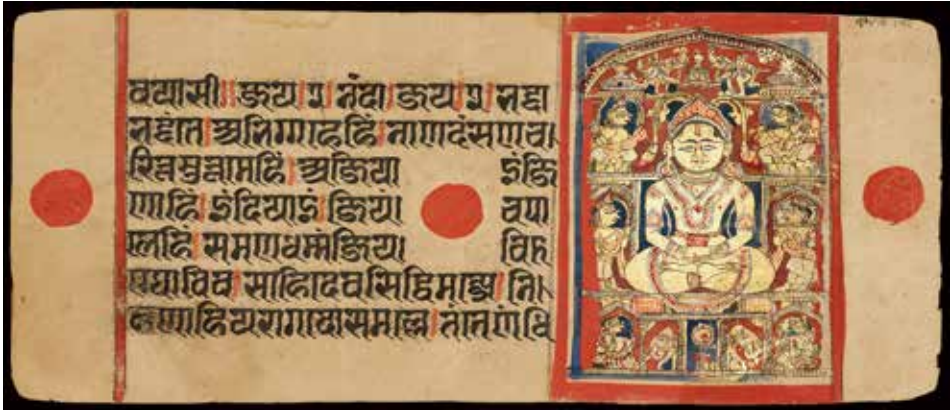 वयासी॥जय२नंदा।जय२भद्दा
भद्दंते।अभिग्गाहेहिं।नाणदंसणच
रित्तमुत्तमेहिं।अजियाइं जि
णाहिं।इंदियाइं।जियं। च पा
लेहिं।समणधम्मंजिय। वि
साहिदेवसिद्धिमज्झे।नि
हणाहियरागदोसमल्ले।तवेणंधि